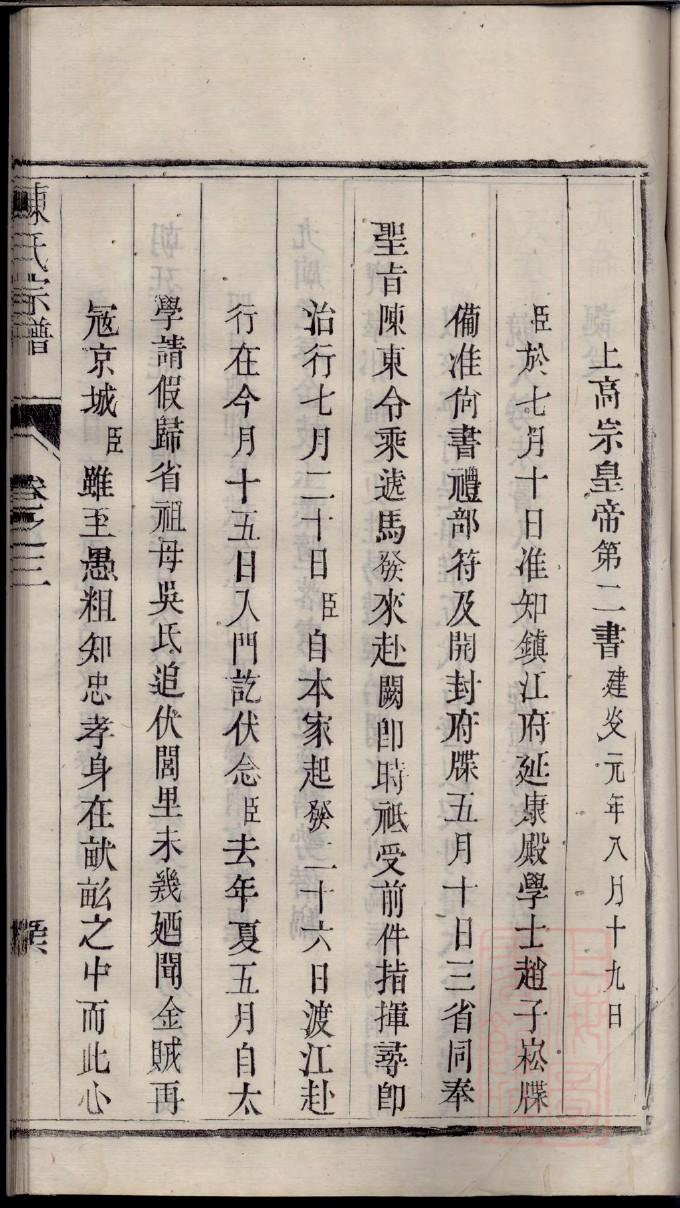 上高宗皇帝第二書建炎元年八月十九日
臣於七月十日准知鎮江府延康殿學士趙子崧牒
備准尙書禮部符及開封府牒五月十日三省同奉
聖旨陳東令乘遞馬發來赴闕卽時祗受前件指揮尋卽
治行七月二十日臣自本家起發二十六日渡江赴
行在今月十五日入門訖伏念臣去年夏五月自太
學請假歸省祖母吳氏追伏閭里未幾廼聞金賊再
冦京城臣雖至愚粗知忠孝身在畎畝之中而此心
陳氏宗譜
卷之三